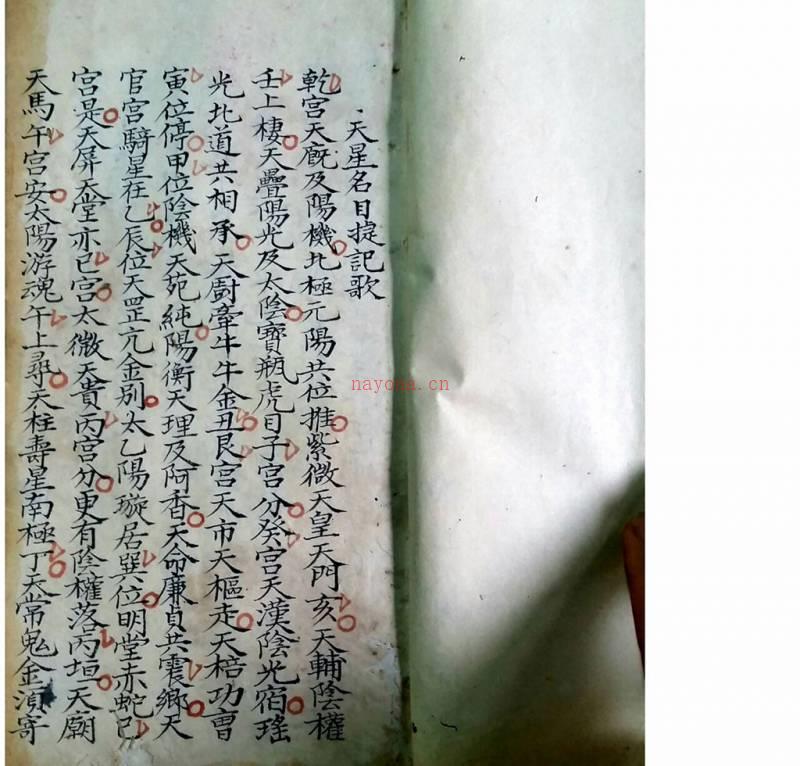 天星名目掟記歌
乾宮天厩及陽機北極元陽共位推紫微天皇天門亥天輔陰權
壬上棲天壘陽光及太陰寶瓶虎目子宮分癸宮天漢陰光宿瑤
光北道共相承天厨牽牛牛金丑艮宮天市天樞走天棓功曹
寅位停甲位陰機天苑純陽衡天理及阿香天命廉貞共震鄉天
官宮騎星在乙辰位天罡亢金別太乙陽璇居巽位明堂赤蛇巳
宮是天屏天堂亦巳宮太微天貴丙宮分更有陰權落丙垣天廟
天馬午宮安太陽游魂午上尋天柱壽星南極丁天常鬼金湏寄
nayona.cn